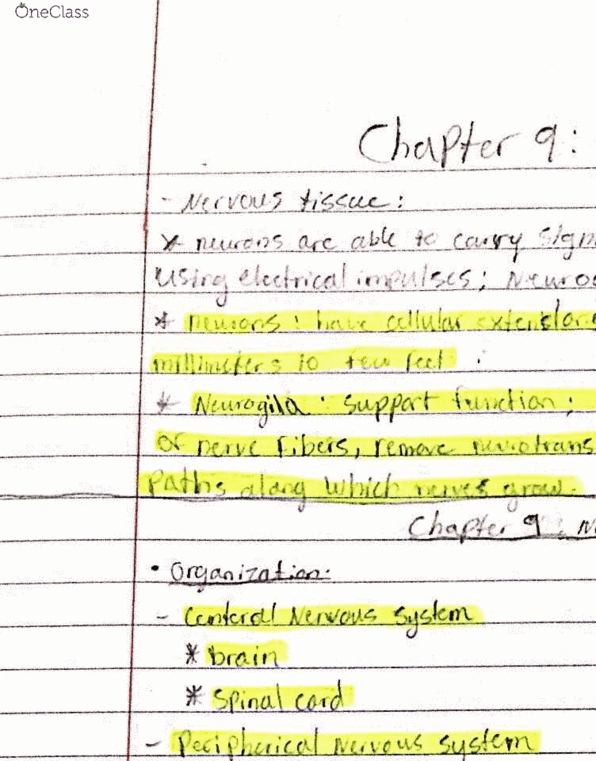 OneClass
Chapter 9:
- Nervous tissue:
* neurons are able to carry sign
using electrical impulses; Neurog
* neurons: have cellular extension
millimeters to few feet.
* Neurogila: Support function;
of nerve fibers, remove neurotrans
Paths along which nerves grow.
Chapter 9: N
• Organization:
- Centeral Nervous System
* brain
* Spinal cord
- Peripherical Nervous system